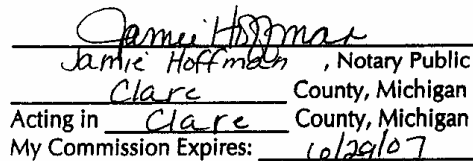 Jamie Hoffman
Jamie Hoffman, Notary Public
Clare County, Michigan
Acting in Clare County, Michigan
My Commission Expires: 10/29/07